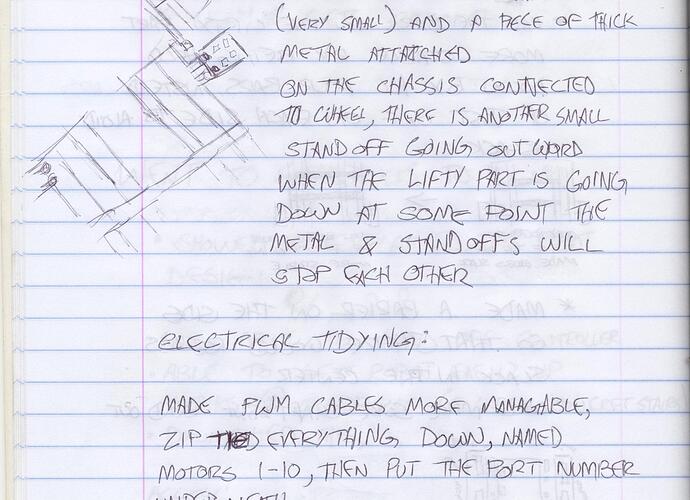 (VERY SMALL) AND A PIECE OF THICK
METAL ATTATCHED
ON THE CHASSIS CONNECTED
TO WHEEL, THERE IS ANOTHER SMALL
STAND OFF GOING OUTWORD
WHEN THE LIFTY PART IS GOING
DOWN AT SOME POINT THE
METAL & STANDOFFS WILL
STOP EACH OTHER
ELECTRICAL TIDYING:
MADE PWM CABLES MORE MANAGABLE,
ZIP TIED EVERYTHING DOWN, NAMED
MOTORS 1-10, THEN PUT THE PORT NUMBER
UNDERNEATH